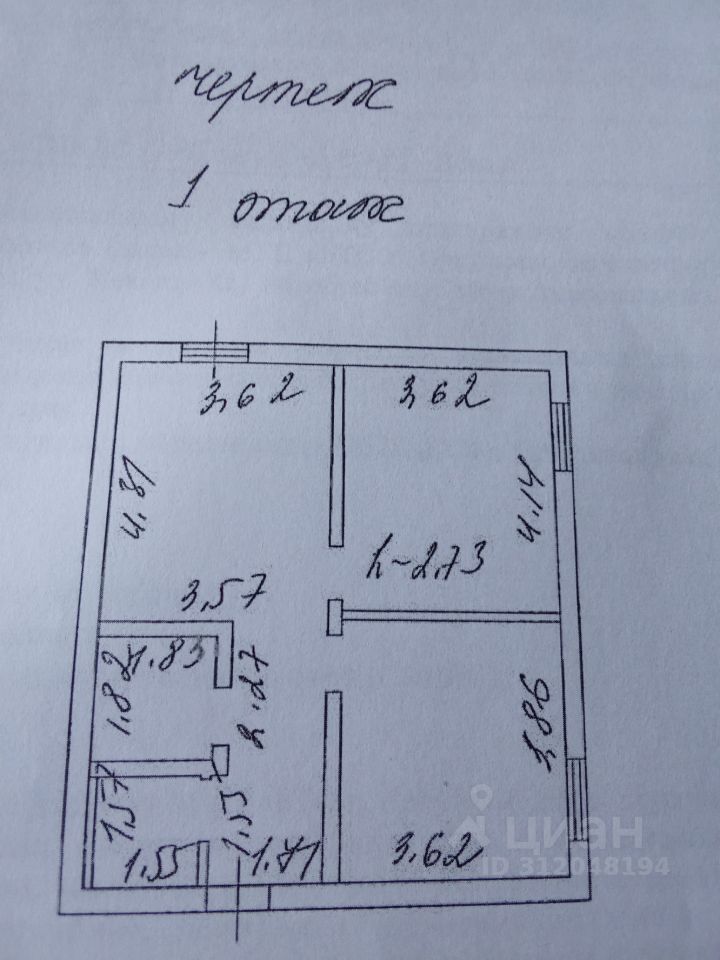 чертеж
1 этаж
3,62
3,62
4.81
4.14
h-2,73
3,57
1.83
1.82
2.27
3,86
1.57
1.53
1.55
1.71
3.62
циан
ID 312048194